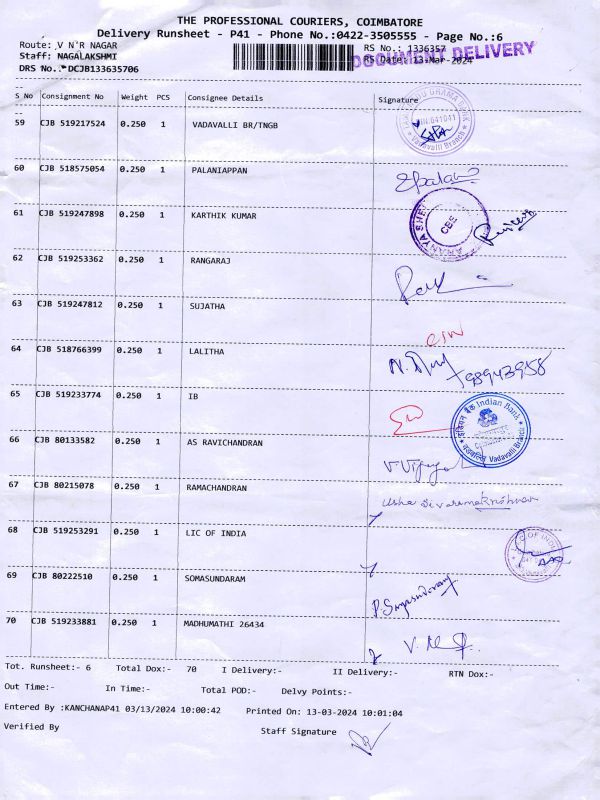 THE PROFESSIONAL COURIERS, COIMBATORE
Delivery Runsheet - P41 - Phone No.:0422-3505555 - Page No.:6
Route: V N'R NAGAR RS No.: 1336357
DOCUMENT DELIVERY
Staff: NAGALAKSHMI RS Date: 13-Mar-2024
DRS No.: DCJB133635706
S No Consignment No Weight PCS Consignee Details Signature
59 CJB 519217524 0.250 1 VADAVALLI BR/TNGB
GRAMA BANK
641041
Vadavalli Branch
60 CJB 518575054 0.250 1 PALANIAPPAN
61 CJB 519247898 0.250 1 KARTHIK KUMAR
CBE
62 CJB 519253362 0.250 1 RANGARAJ
63 CJB 519247812 0.250 1 SUJATHA
64 CJB 518766399 0.250 1 LALITHA
65 CJB 519233774 0.250 1 IB
इंडियन बैंक Indian Bank
Vadavalli Branch
66 CJB 80133582 0.250 1 AS RAVICHANDRAN
67 CJB 80215078 0.250 1 RAMACHANDRAN
Usha Sivaramakrishnan
68 CJB 519253291 0.250 1 LIC OF INDIA
LIC OF INDIA
69 CJB 80222510 0.250 1 SOMASUNDARAM
70 CJB 519233881 0.250 1 MADHUMATHI 26434
Tot. Runsheet:- 6 Total Dox:- 70 I Delivery:- II Delivery:- RTN Dox:-
Out Time:- In Time:- Total POD:- Delvy Points:-
Entered By :KANCHANAP41 03/13/2024 10:00:42 Printed On: 13-03-2024 10:01:04
Verified By Staff Signature